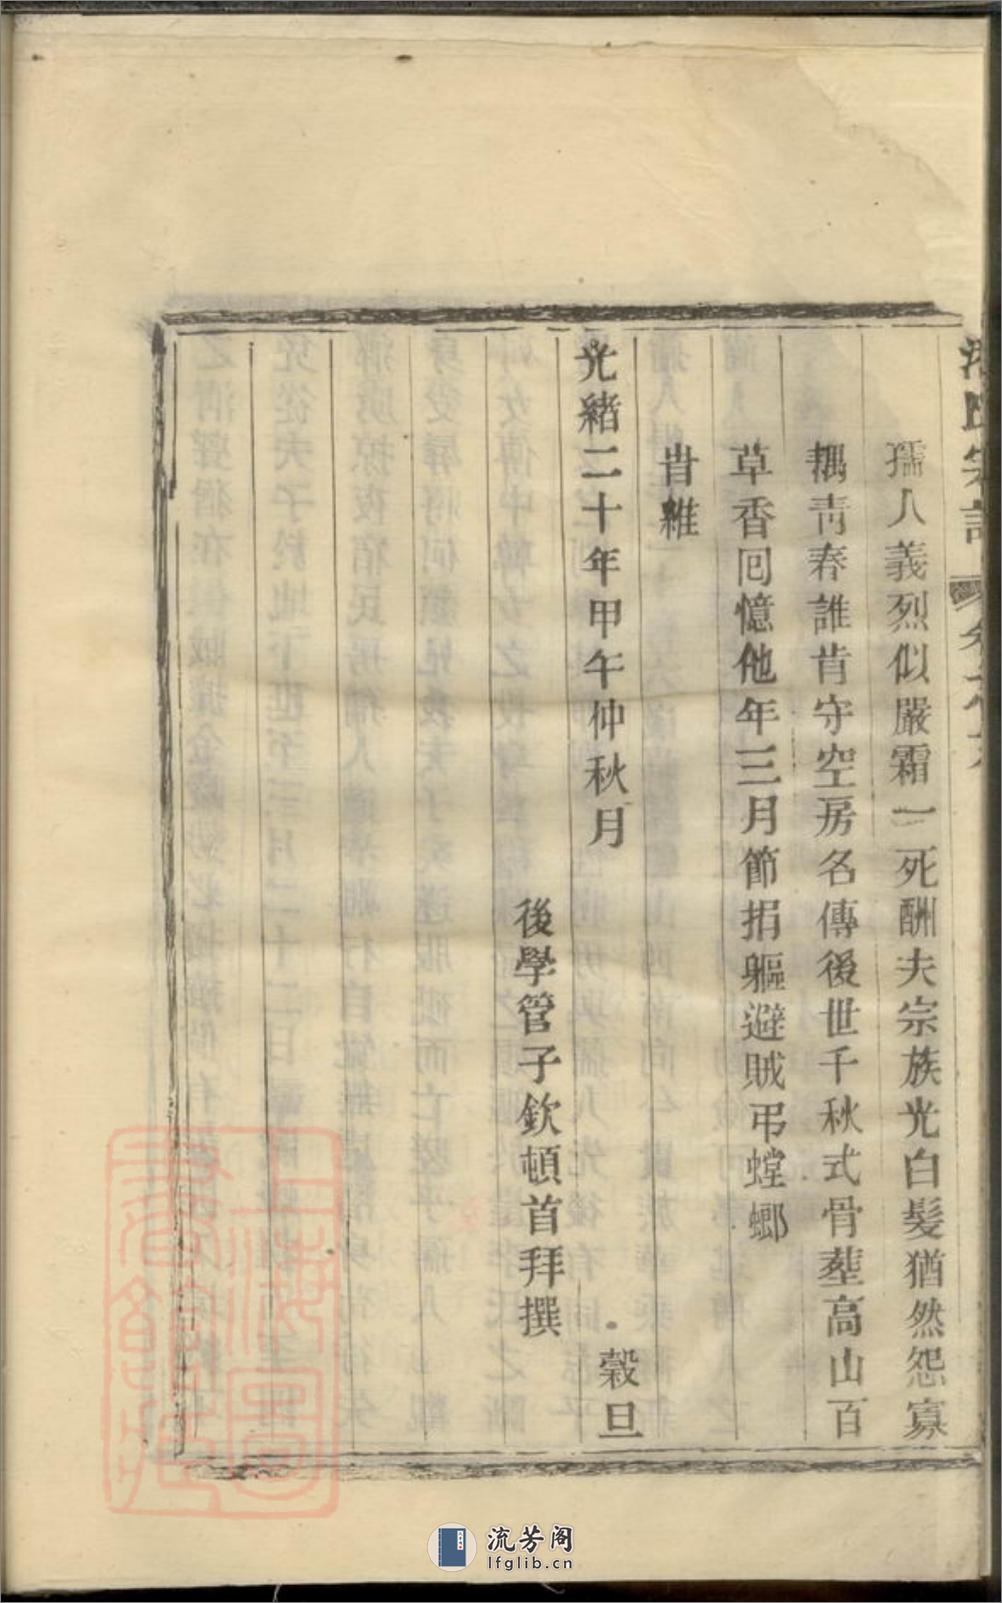 孺人義烈似嚴霜一死酬夫宗族光白髮猶然怨寡
耦青春誰肯守空房名傳後世千秋式骨塟高山百
草香回憶他年三月節捐軀避賊弔螳螂
昔雜
光緒二十年甲午仲秋月 穀旦
後學管子欽頓首拜撰
氏宗譜
上海圖書館藏
流芳阁
lfglib.cn